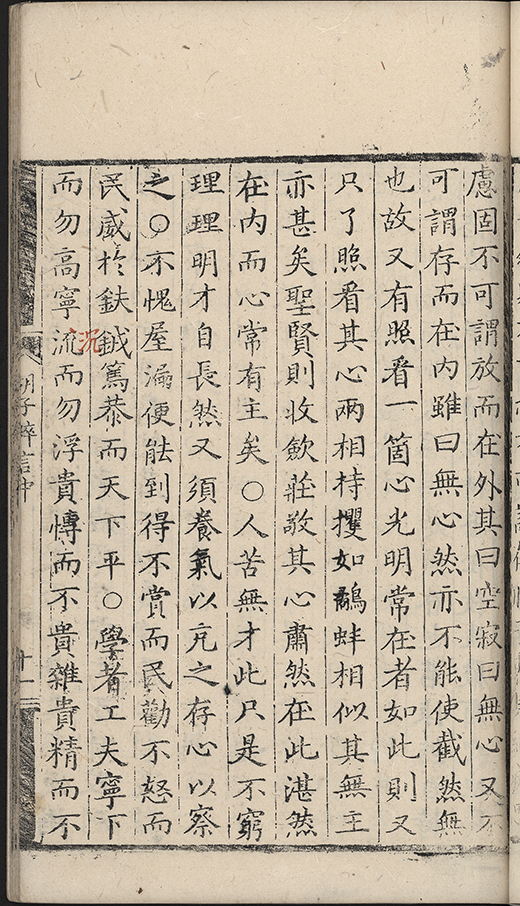 慮固不可謂放而在外其曰空寂曰無心又不
可謂存而在内雖曰無心然亦不能使截然無
也故又有照看一箇心光明常在者如此則又
只了照看其心兩相持攖如鷸蚌相似其無主
亦甚矣聖賢則收歛莊敬其心肅然在此湛然
在内而心常有主矣○人苦無才此只是不窮
理理明才自長然又須養氣以充之存心以察
之○不愧屋漏便能到得不賞而民勸不怒而
民威於鈇鉞篤恭而天下平○學者工夫寧下
而勿高寧流而勿浮貴慱而不貴雜貴精而不
沉
胡子粹言中
十一